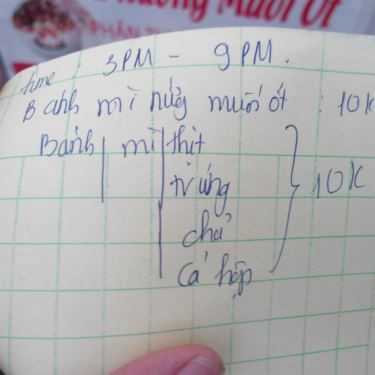 ướng Muối Ớt
time : 3PM - 9PM.
Bánh mì nướng muối ớt : 10K
Bánh mì thịt
trứng
chả
cá hộp
10K